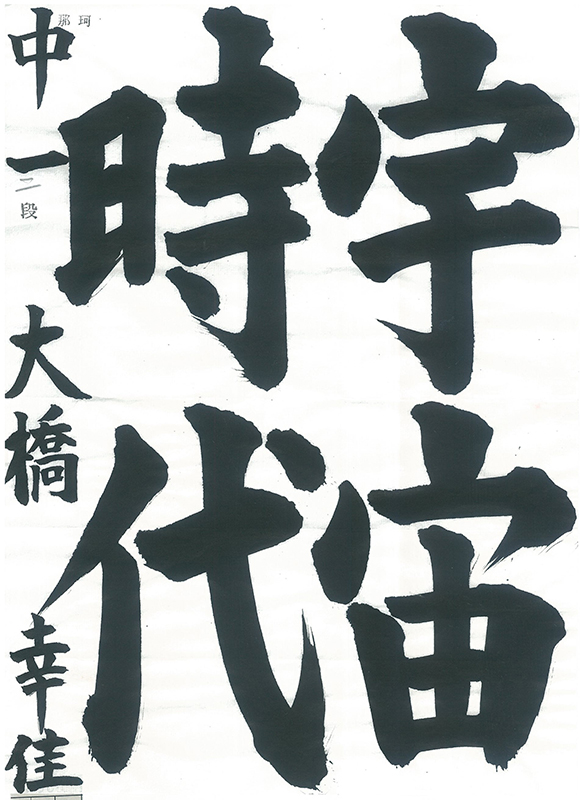 宇宙
時代
中一 大橋 幸佳
二段
珂那